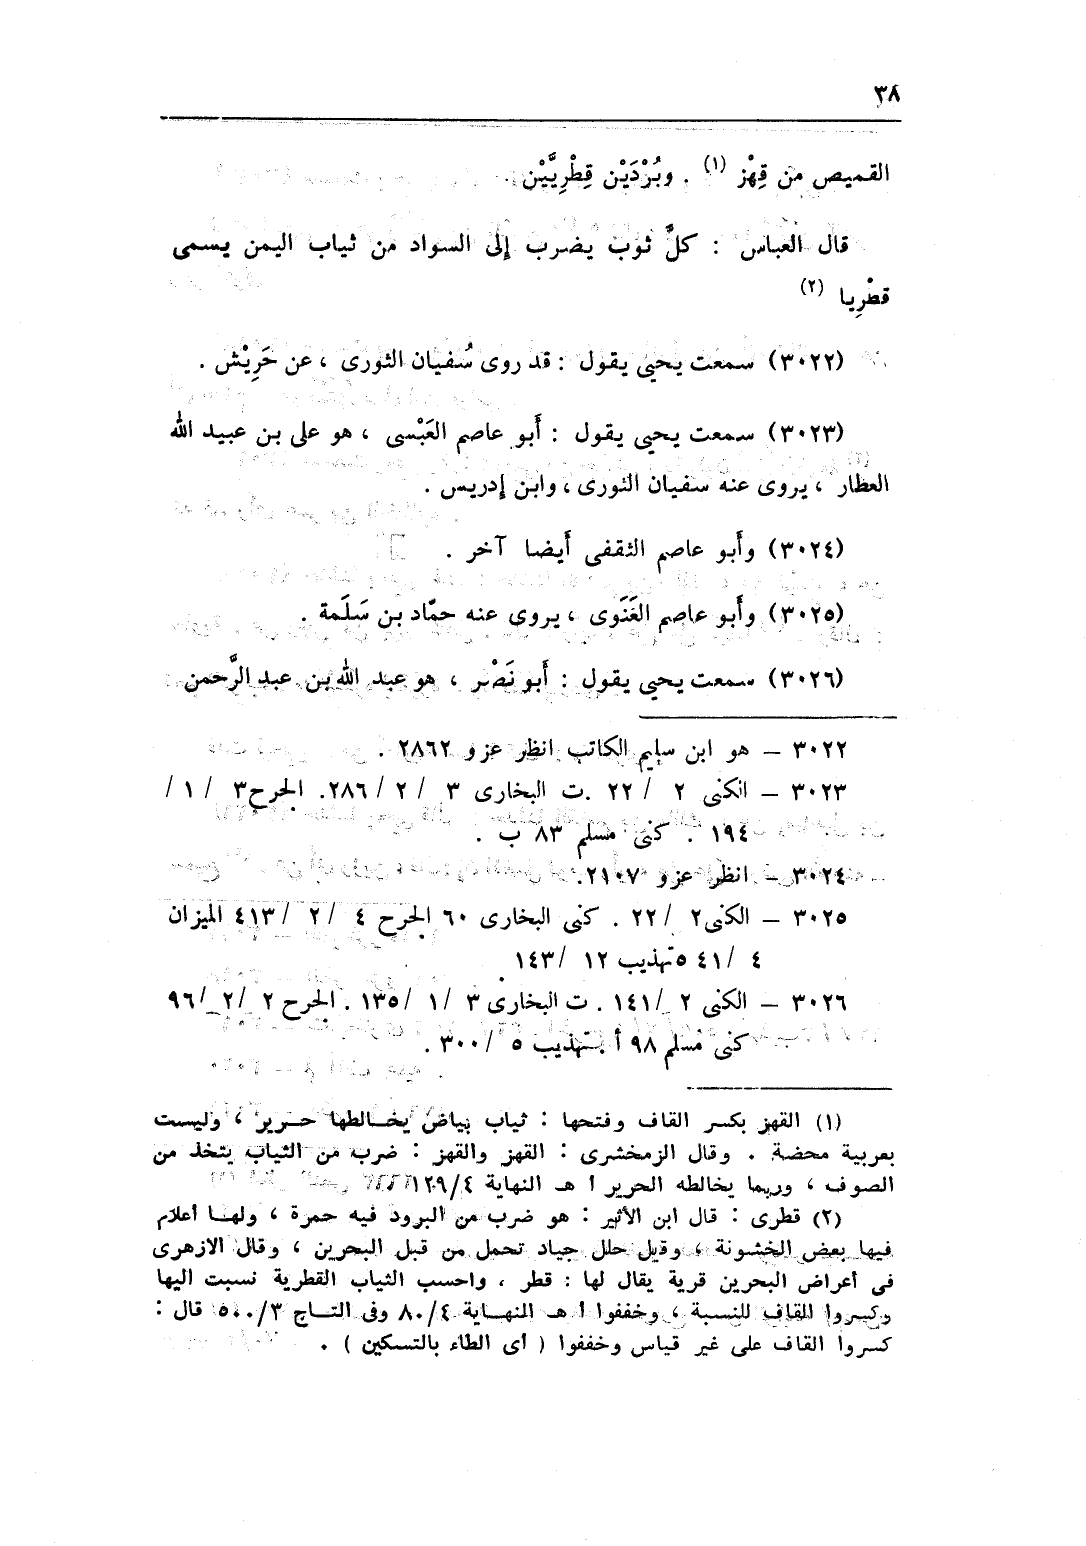 ٣٨
القميص من قِهْز (١) . وبُرْدَيْن قِطْرِيَّيْن .
قال العباس : كلُّ ثوب يضرب إلى السواد من ثياب اليمن يسمى
قطْرِيا (٢)
(٣٠٢٢) سمعت يحيى يقول : قد روى سُفيان الثورى ، عن حَرِيْش .
(٣٠٢٣) سمعت يحيى يقول : أَبو عاصم العَبْسى ، هو على بن عبيد الله
العطار ، يروى عنه سفيان الثورى ، وابن إدريس .
(٣٠٢٤) وأَبو عاصم الثقفى أَيضا آخر .
(٣٠٢٥) وأَبو عاصم الغَنَوى ، يروى عنه حمّاد بن سَلَمة .
(٣٠٢٦) سمعت يحيى يقول : أَبو نَصْر ، هو عبد الله بن عبد الرَّحمن
٣٠٢٢ – هو ابن سليم الكاتب انظر عزو ٢٨٦٢ .
٣٠٢٣ – الكنى ٢ / ٢٢ . ت البخارى ٣ / ٢ / ٢٨٦ . الجرح ٣ / ١ /
١٩٤ . كنى مسلم ٨٣ ب .
٣٠٢٤ – انظر عزو ٢١٠٧ .
٣٠٢٥ – الكنى ٢ / ٢٢ . كنى البخارى ٦٠ الجرح ٤ / ٢ / ٤١٣ الميزان
٤ / ٥٤١ تهذيب ١٢ / ١٤٣
٣٠٢٦ – الكنى ٢ / ١٤١ . ت البخارى ٣ / ١ / ١٣٥ . الجرح ٢ / ٢ / ٩٦
كنى مسلم ٩٨ أ . تهذيب ٥ / ٣٠٠ .
(١) القهز بكسر القاف وفتحها : ثياب بياض يخالطها حرير ، وليست
بعربية محضة . وقال الزمخشرى : القهز والقهز : ضرب من الثياب يتخذ من
الصوف ، وربما يخالطه الحرير ا هـ النهاية ١٢٩/٤ .
(٢) قطرى : قال ابن الأثير : هو ضرب من البرود فيه حمرة ، ولها أعلام
فيها بعض الخشونة ، وقيل حلل جياد تحمل من قبل البحرين ، وقال الازهرى
فى أعراض البحرين قرية يقال لها : قطر ، واحسب الثياب القطرية نسبت اليها
وكسروا القاف للنسبة ، وخففوا ا هـ النهاية ٨٠/٤ وفى التاج ٥٠٠/٣ قال :
كسروا القاف على غير قياس وخففوا ( أى الطاء بالتسكين ) .